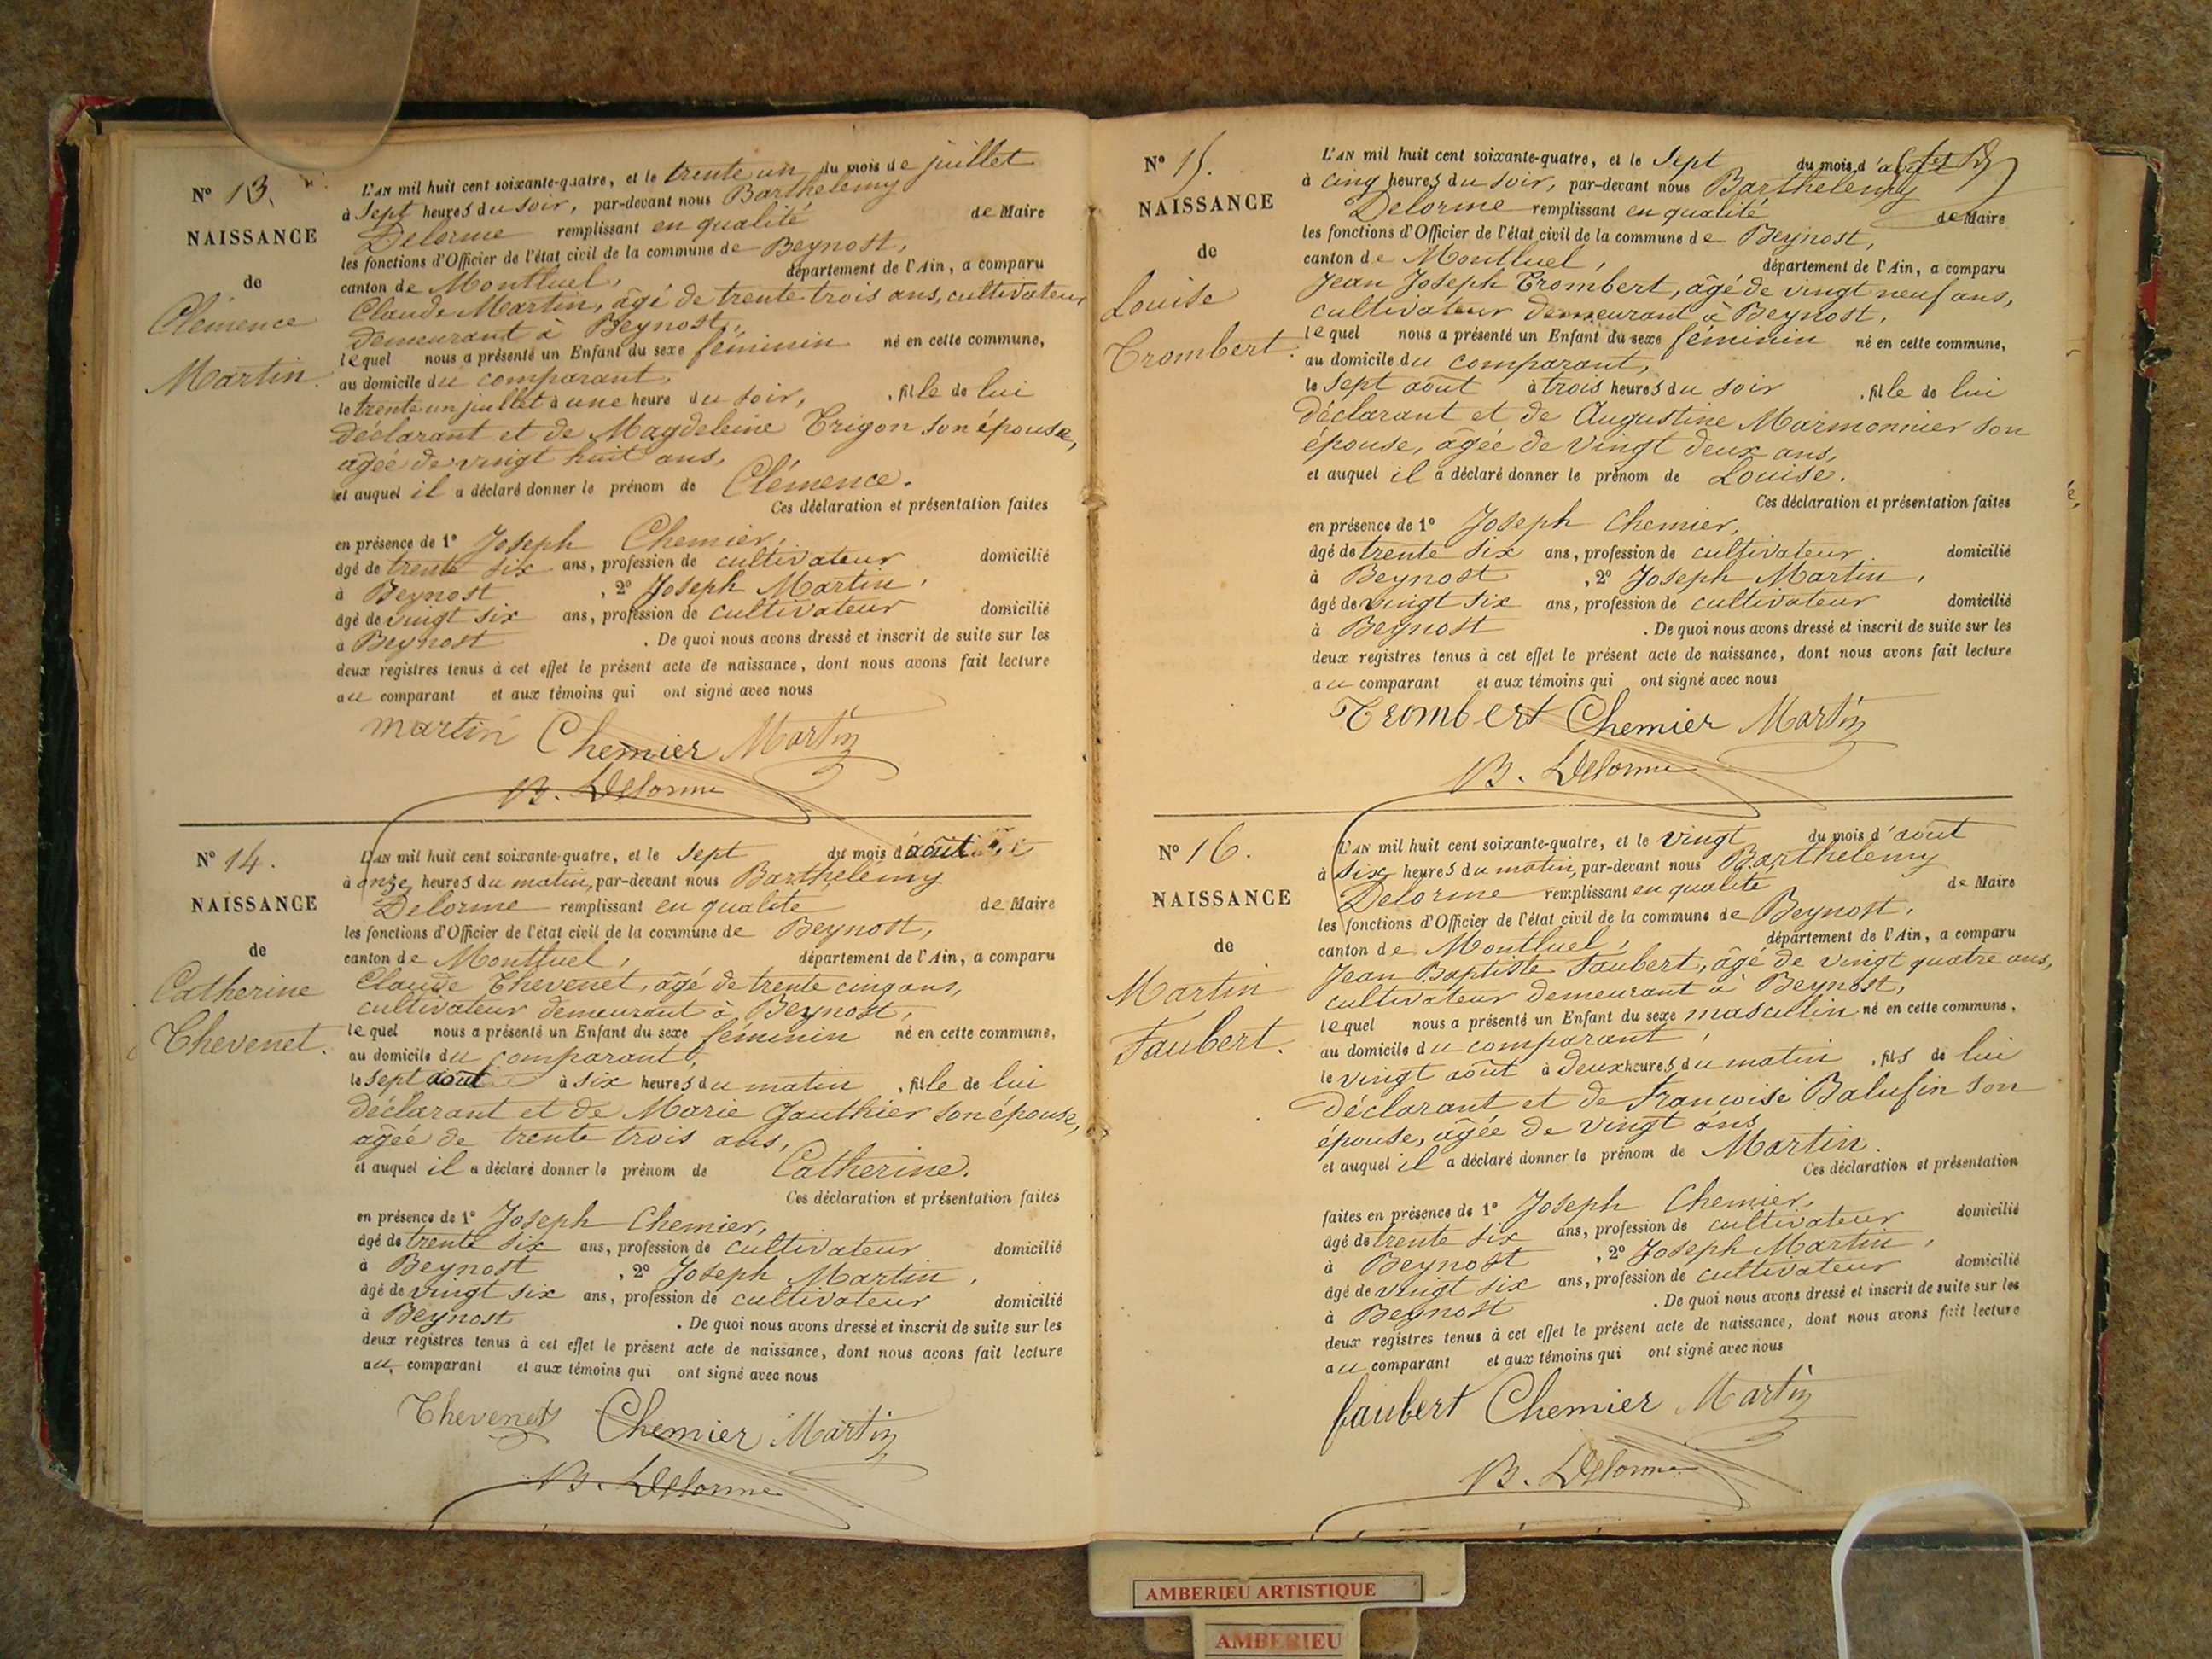 N° 13.
NAISSANCE
de
Clémence
Martin.
L'AN mil huit cent soixante-quatre, et le trente un du mois de juillet
à Sept heures du soir, par-devant nous Barthelemy
Delorme remplissant en qualité de Maire
les fonctions d'Officier de l'état civil de la commune de Beynost,
canton de Montluel, département de l'Ain, a comparu
Claude Martin, âgé de trente trois ans, cultivateur
demeurant à Beynost,
lequel nous a présenté un Enfant du sexe féminin né en cette commune,
au domicile du comparant,
le trente un juillet à une heure du soir, fille de lui
déclarant et de Magdeleine Trigon son épouse,
âgée de vingt huit ans,
et auquel il a déclaré donner le prénom de Clémence.
Ces déclaration et présentation faites
en présence de 1° Joseph Chemier,
âgé de trente six ans, profession de cultivateur domicilié
à Beynost, 2° Joseph Martin,
âgé de vingt six ans, profession de cultivateur domicilié
à Beynost. De quoi nous avons dressé et inscrit de suite sur les
deux registres tenus à cet effet le présent acte de naissance, dont nous avons fait lecture
au comparant et aux témoins qui ont signé avec nous
martin Chemier Martin
B. Delorme
N° 14.
NAISSANCE
de
Catherine
Thevenet.
L'AN mil huit cent soixante-quatre, et le Sept du mois d'août
à onze heures du matin, par-devant nous Barthélemy
Delorme remplissant en qualité de Maire
les fonctions d'Officier de l'état civil de la commune de Beynost,
canton de Montluel, département de l'Ain, a comparu
Claude Thevenet, âgé de trente cinq ans,
cultivateur demeurant à Beynost,
lequel nous a présenté un Enfant du sexe féminin né en cette commune,
au domicile du comparant,
le sept août à six heures du matin, fille de lui
déclarant et de Marie Gauthier son épouse,
âgée de trente trois ans,
et auquel il a déclaré donner le prénom de Catherine.
Ces déclaration et présentation faites
en présence de 1° Joseph Chemier,
âgé de trente six ans, profession de cultivateur domicilié
à Beynost, 2° Joseph Martin,
âgé de vingt six ans, profession de cultivateur domicilié
à Beynost. De quoi nous avons dressé et inscrit de suite sur les
deux registres tenus à cet effet le présent acte de naissance, dont nous avons fait lecture
au comparant et aux témoins qui ont signé avec nous
Thevenet Chemier Martin
B. Delorme
N° 15.
NAISSANCE
de
Louise
Trombert.
L'AN mil huit cent soixante-quatre, et le Sept du mois d'août
à cinq heures du soir, par-devant nous Barthelemy
Delorme remplissant en qualité de Maire
les fonctions d'Officier de l'état civil de la commune de Beynost,
canton de Montluel, département de l'Ain, a comparu
Jean Joseph Trombert, âgé de vingt neuf ans,
cultivateur demeurant à Beynost,
lequel nous a présenté un Enfant du sexe féminin né en cette commune,
au domicile du comparant,
le Sept août à trois heures du soir, fille de lui
déclarant et de Augustine Marmonnier son
épouse, âgée de vingt deux ans,
et auquel il a déclaré donner le prénom de Louise.
Ces déclaration et présentation faites
en présence de 1° Joseph Chemier,
âgé de trente six ans, profession de cultivateur domicilié
à Beynost, 2° Joseph Martin,
âgé de vingt six ans, profession de cultivateur domicilié
à Beynost. De quoi nous avons dressé et inscrit de suite sur les
deux registres tenus à cet effet le présent acte de naissance, dont nous avons fait lecture
au comparant et aux témoins qui ont signé avec nous
Trombert Chemier Martin
B. Delorme
N° 16.
NAISSANCE
de
Martin
Faubert.
L'AN mil huit cent soixante-quatre, et le vingt du mois d'août
à six heures du matin, par-devant nous Barthelemy
Delorme remplissant en qualité de Maire
les fonctions d'Officier de l'état civil de la commune de Beynost,
canton de Montluel, département de l'Ain, a comparu
Jean Baptiste Faubert, âgé de vingt quatre ans,
cultivateur demeurant à Beynost,
lequel nous a présenté un Enfant du sexe masculin né en cette commune,
au domicile du comparant,
le vingt août à deux heures du matin, fils de lui
déclarant et de Françoise Balufin son
épouse, âgée de vingt ans
et auquel il a déclaré donner le prénom de Martin.
Ces déclaration et présentation
faites en présence de 1° Joseph Chemier,
âgé de trente six ans, profession de cultivateur domicilié
à Beynost, 2° Joseph Martin,
âgé de vingt six ans, profession de cultivateur domicilié
à Beynost. De quoi nous avons dressé et inscrit de suite sur les
deux registres tenus à cet effet le présent acte de naissance, dont nous avons fait lecture
au comparant et aux témoins qui ont signé avec nous
faubert Chemier Martin
B. Delorme
AMBERIEU ARTISTIQUE
AMBERIEU